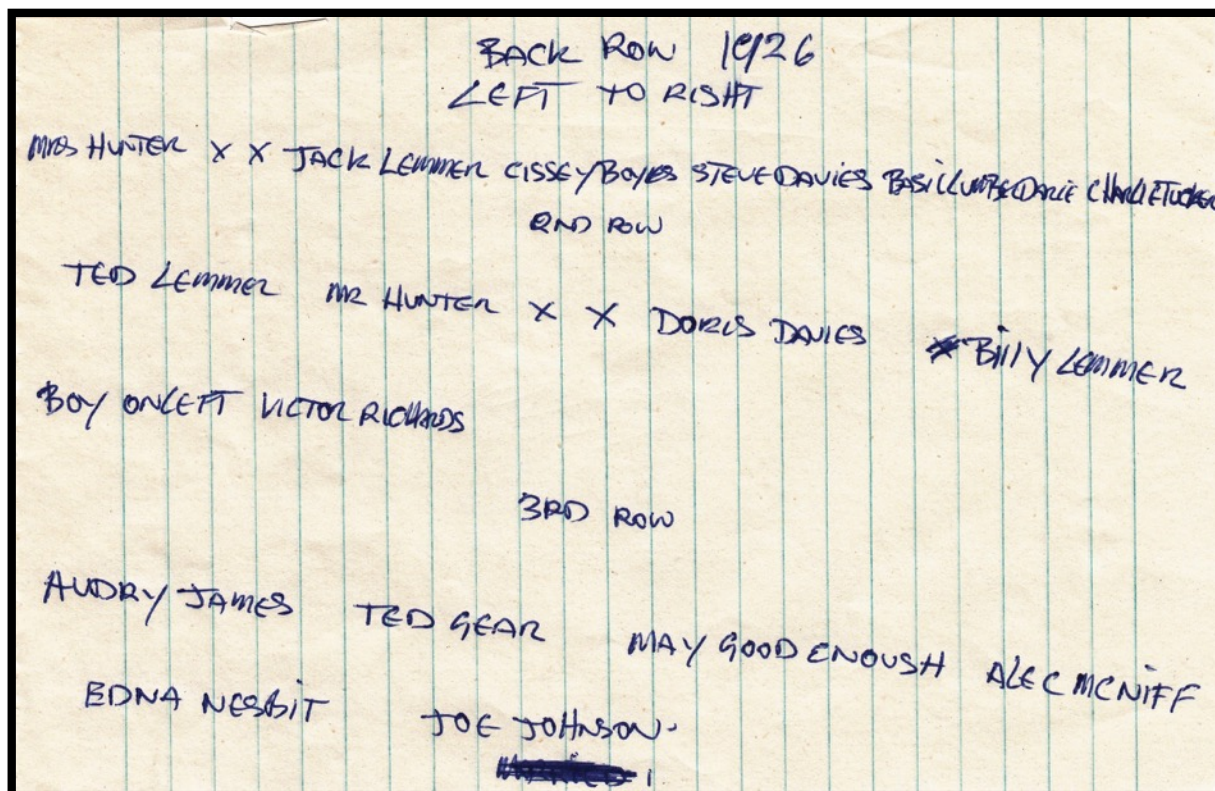 BACK ROW 1926
LEFT TO RIGHT
MRS HUNTER X X JACK LEMMER CISSEY BOYES STEVE DAVIES BASIL CHARLIE TUCKER
2ND ROW
TED LEMMER MR HUNTER X X DORIS DAVIES BILLY LEMMER
BOY ON LEFT VICTOR RICHARDS
3RD ROW
AUDRY JAMES TED GEAR MAY GOOD ENOUGH ALEC MCNIFF
EDNA NESBIT JOE JOHNSON.